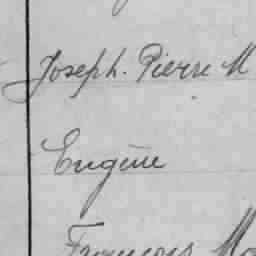 Joseph. Pierre M
Eugène
François Ma